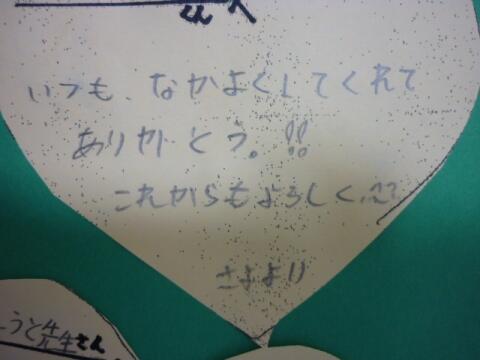 さんへ
いつも、なかよくしてくれて
ありがとう。!!
これからもよろしく^^?
さよより
うと先生さん